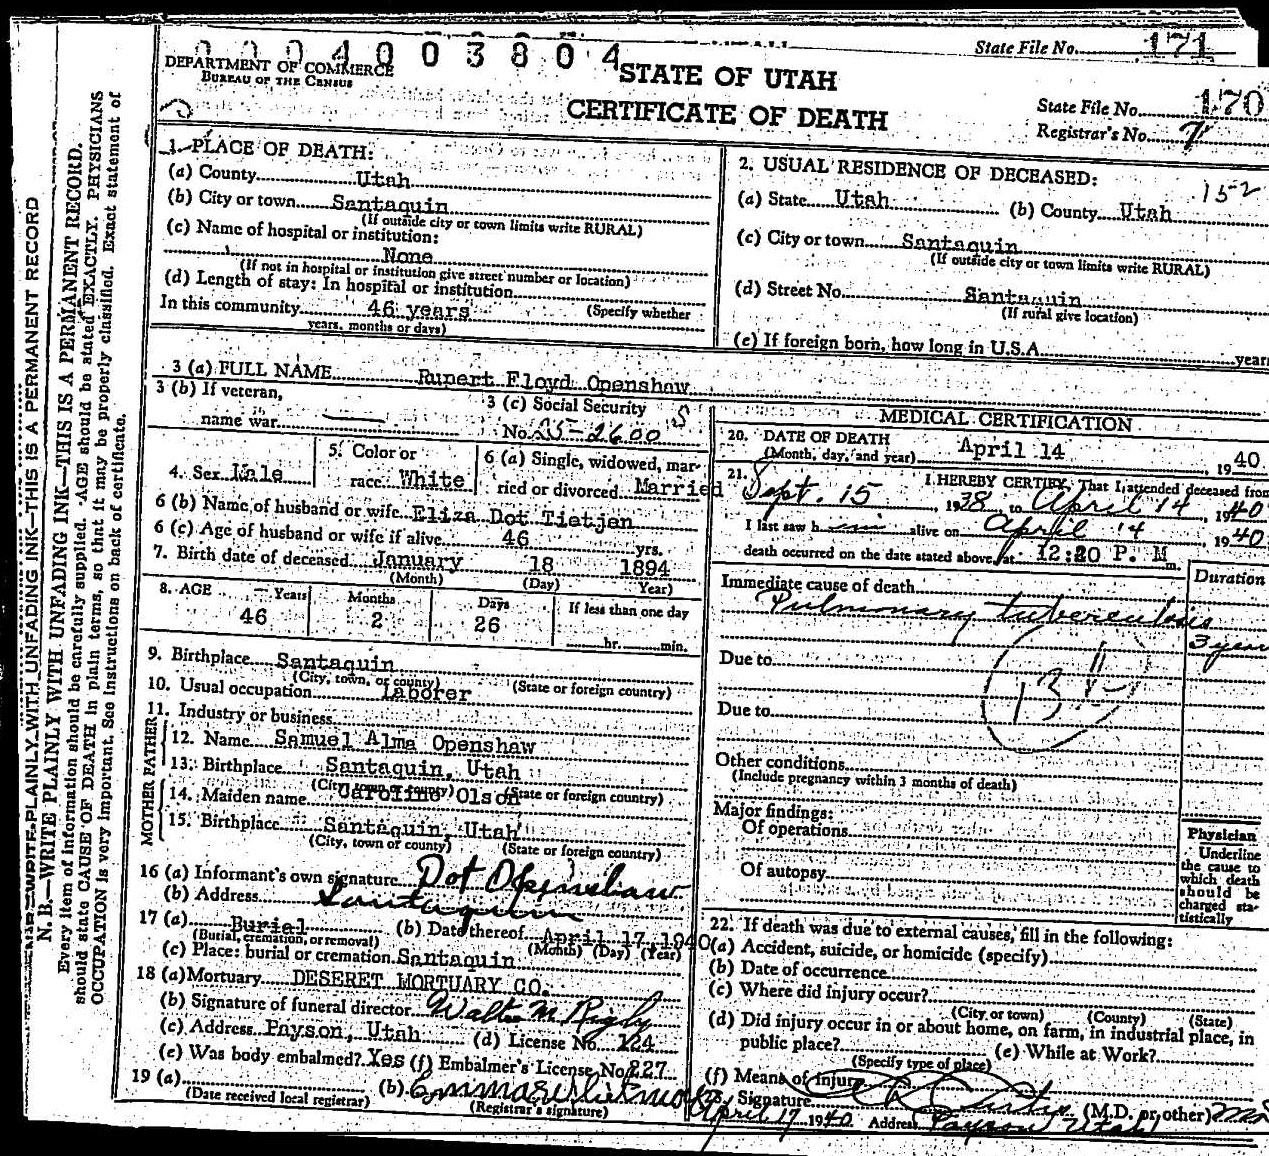 0004003804
State File No. 171
DEPARTMENT OF COMMERCE
BUREAU OF THE CENSUS
STATE OF UTAH
CERTIFICATE OF DEATH
State File No. 170
Registrar's No. 7
1. PLACE OF DEATH:
(a) County Utah
(b) City or town Santaquin
(If outside city or town limits write RURAL)
(c) Name of hospital or institution:
None
(If not in hospital or institution give street number or location)
(d) Length of stay: In hospital or institution
In this community 46 years (Specify whether
years, months or days)
2. USUAL RESIDENCE OF DECEASED:
152
(a) State Utah (b) County Utah
(c) City or town Santaquin
(If outside city or town limits write RURAL)
(d) Street No. Santaquin
(If rural give location)
(e) If foreign born, how long in U.S.A. years
3 (a) FULL NAME Rupert Floyd Openshaw
3 (b) If veteran,
name war
3 (c) Social Security
No.
4. Sex Male
5. Color or
race White
6 (a) Single, widowed, mar-
ried or divorced Married
6 (b) Name of husband or wife Eliza Dot Tietjen
6 (c) Age of husband or wife if alive 46 yrs.
7. Birth date of deceased January 18 1894
(Month) (Day) Year)
8. AGE Years Months Days If less than one day
46 2 26 hr. min.
9. Birthplace Santaquin
(City, town, or county) (State or foreign country)
10. Usual occupation Laborer
11. Industry or business
FATHER
12. Name Samuel Alma Openshaw
13. Birthplace Santaquin, Utah
(City, town or county) (State or foreign country)
MOTHER
14. Maiden name Caroline Olson
15. Birthplace Santaquin, Utah
(City, town or county) (State or foreign country)
16 (a) Informant's own signature Dot Openshaw
(b) Address Santaquin
17 (a) Burial (b) Date thereof April 17, 1940
(Burial, cremation, or removal) (Month) (Day) (Year)
(c) Place: burial or cremation Santaquin
18 (a) Mortuary DESERET MORTUARY CO.
(b) Signature of funeral director Walter M Rigby
(c) Address Payson, Utah (d) License No. 124
(e) Was body embalmed? Yes (f) Embalmer's License No. 227
19 (a) (b)
(Date received local registrar) (Registrar's signature)
MEDICAL CERTIFICATION
20. DATE OF DEATH
(Month, day, and year) April 14 1940
21. I HEREBY CERTIFY, That I attended deceased from
Sept. 15 1938 to April 14 1940
I last saw him alive on April 14 1940
death occurred on the date stated above, at 12:20 P. M m.
Immediate cause of death Duration
Pulmonary tuberculosis
3 years
Due to
Due to
Other conditions
(Include pregnancy within 3 months of death)
Major findings:
Of operations
Of autopsy
Physician
Underline
the cause to
which death
should be
charged sta-
tistically
22. If death was due to external causes, fill in the following:
(a) Accident, suicide, or homicide (specify)
(b) Date of occurrence
(c) Where did injury occur?
(City or town) (County) (State)
(d) Did injury occur in or about home, on farm, in industrial place, in
public place? (e) While at Work?
(Specify type of place)
(f) Means of Injury
23. Signature Curtis (M.D. or other) MD
April 17 1940 Address Payson Utah
WRITE PLAINLY WITH UNFADING INK—THIS IS A PERMANENT RECORD
N. B.—WRITE PLAINLY WITH UNFADING INK—THIS IS A PERMANENT RECORD.
Every item of information should be carefully supplied. AGE should be stated EXACTLY. PHYSICIANS
should state CAUSE OF DEATH in plain terms, so that it may be properly classified. Exact statement of
OCCUPATION is very important. See instructions on back of certificate.